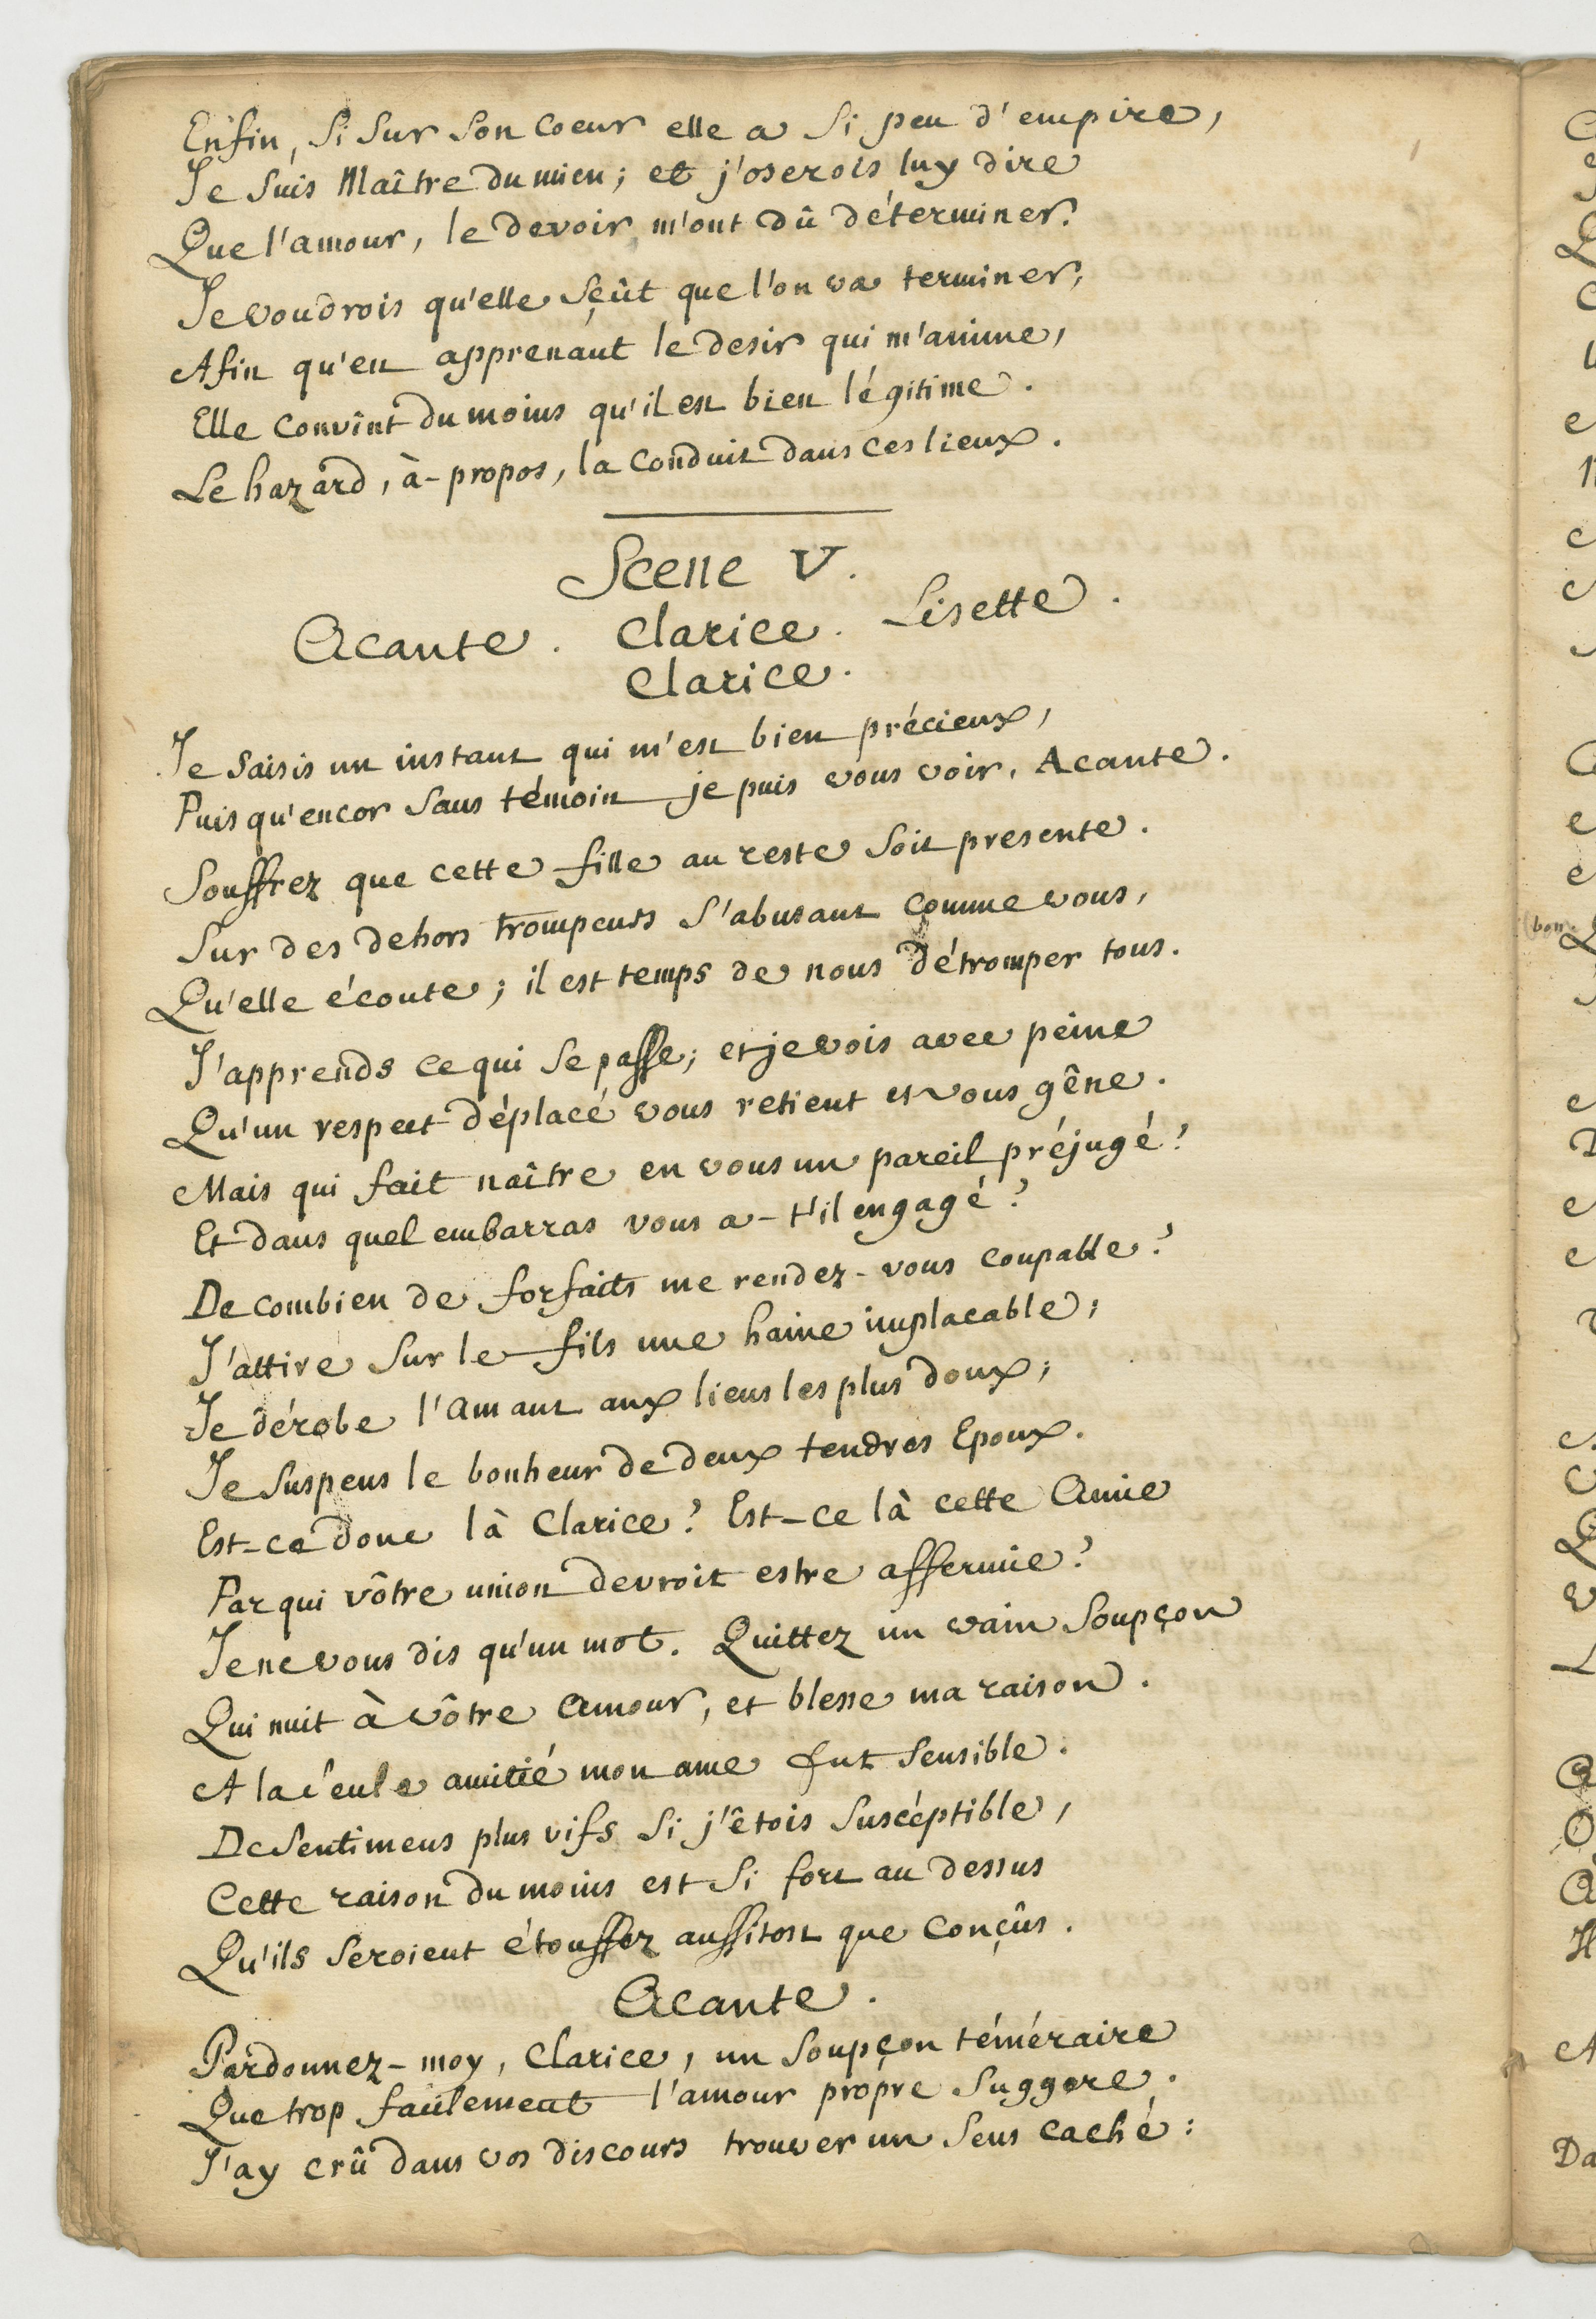 Enfin, si sur son coeur elle a si peu d'empire,
Je suis Maître du mien; et j'oserois luy dire
Que l'amour, le devoir, m'ont dû déterminer.
Je voudrois qu'elle sçût que l'on va terminer;
Afin qu'en apprenant le desir qui m'anime,
Elle convînt du moins qu'il est bien légitime.
Le hazard, à-propos, la conduit dans ces lieux.
Scene V.
Acante. Clarice. Lisette.
Clarice.
Je saisis un instant qui m'est bien précieux,
Puisqu'encor sans témoin je puis vous voir, Acante.
Souffrez que cette fille au reste soit presente.
Sur des dehors trompeurs s'abusant comme vous,
Qu'elle écoute; il est temps de nous détromper tous.
J'apprends ce qui se passe; et je vois avec peine
Qu'un respect déplacé vous retient et vous gêne.
Mais qui fait naître en vous un pareil préjugé?
Et dans quel embarras vous a-t'il engagé?
De combien de forfaits me rendez-vous coupable?
J'attire sur le fils une haine implacable;
Je dérobe l'Amant aux liens les plus doux;
Je suspens le bonheur de deux tendres Epoux.
Est-ce donc là Clarice? Est-ce là cette Amie
Par qui vôtre union devroit estre affermie?
Je ne vous dis qu'un mot. Quittez un vain soupçon
Qui nuit à vôtre Amour, et blesse ma raison.
A la seule amitié mon ame fut sensible.
De sentimens plus vifs si j'êtois suscéptible,
Cette raison du moins est si fort au dessus
Qu'ils seroient étouffez aussitost que conçûs.
Acante.
Pardonnez-moy, Clarice, un soupçon téméraire
Que trop facilement l'amour propre suggere.
J'ay crû dans vos discours trouver un sens caché: